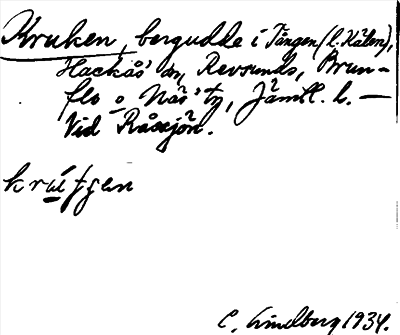 Kruken, bergudde i Tången (l. Kälen),
Hackås' sn, Revsunds, Brun-
flo o Näs' tg, Jämtl. l. —
Vid Råssjön.
C. Lindberg 1934.